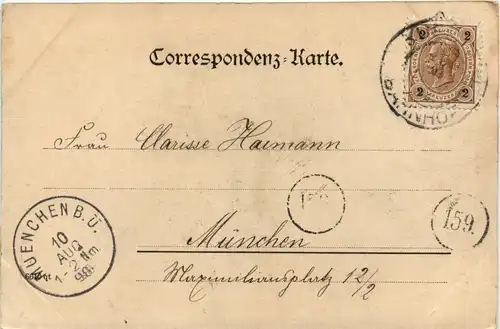 2 2
2 2
Correspondenz-Karte.
Frau Clarisse Haimann
159.
MUENCHEN B.Ü.
10
AUG
1-2 Nm.
98.
München
Maximiliansplatz 12/2